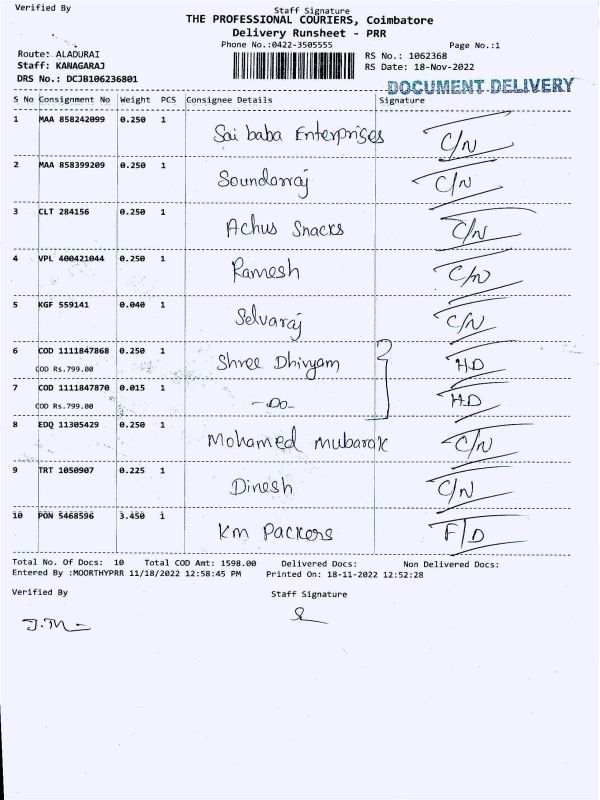 Verified By
Staff Signature
THE PROFESSIONAL COURIERS, Coimbatore
Delivery Runsheet - PRR
Phone No.:0422-3505555 Page No.:1
Route: ALADURAI RS No.: 1062368
Staff: KANAGARAJ RS Date: 18-Nov-2022
DRS No.: DCJB106236801
DOCUMENT DELIVERY
S No Consignment No Weight PCS Consignee Details Signature
1 MAA 858242099 0.250 1 Sai baba Enterprises C/N
2 MAA 858399209 0.250 1 Soundarraj C/N
3 CLT 284156 0.250 1 Achus Snacks C/N
4 VPL 400421044 0.250 1 Ramesh C/N
5 KGF 559141 0.040 1 Selvaraj C/N
6 COD 1111847868 0.250 1 Shree Dhivyam HD
COD Rs.799.00
7 COD 1111847870 0.015 1 -Do- HD
COD Rs.799.00
8 EDQ 11305429 0.250 1 Mohamed mubarak C/N
9 TRT 1050907 0.225 1 Dinesh C/N
10 PON 5468596 3.450 1 Km Packers F/D
Total No. Of Docs: 10 Total COD Amt: 1598.00 Delivered Docs: Non Delivered Docs:
Entered By :MOORTHYPRR 11/18/2022 12:58:45 PM Printed On: 18-11-2022 12:52:28
Verified By Staff Signature